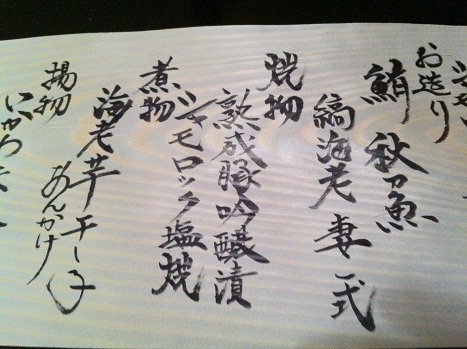 お造り
鮪 秋刀魚
縞海老 妻一式
焼物
熟成豚吟醸漬
シャモロック塩焼
煮物
海老芋 干し子
あんかけ
揚物